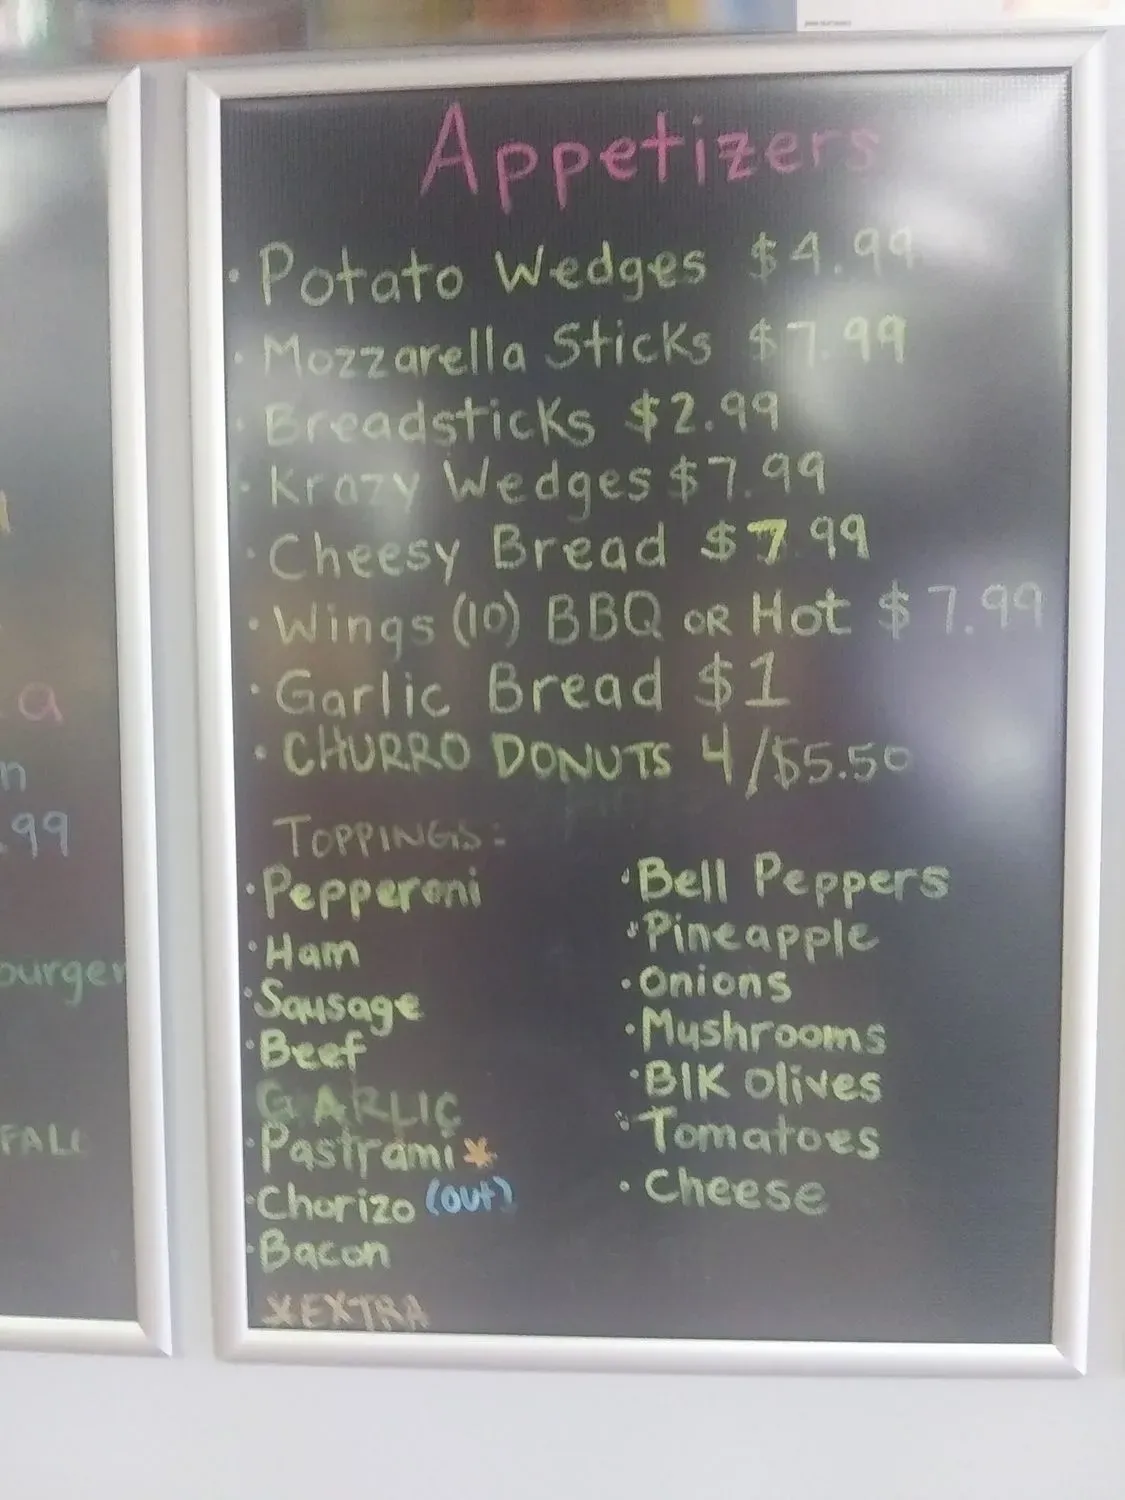 Appetizers
· Potato Wedges $4.99
· Mozzarella Sticks $7.99
· Breadsticks $2.99
· Krazy Wedges $7.99
· Cheesy Bread $7.99
· Wings (10) BBQ OR Hot $7.99
· Garlic Bread $1
· CHURRO DONUTS 4/$5.50
TOPPINGS:
· Pepperoni
· Ham
· Sausage
· Beef
GARLIC
· Pastrami *
· Chorizo (out)
· Bacon
*EXTRA
· Bell Peppers
· Pineapple
· Onions
· Mushrooms
· Blk Olives
· Tomatoes
· Cheese
a
.99
burger
FALL